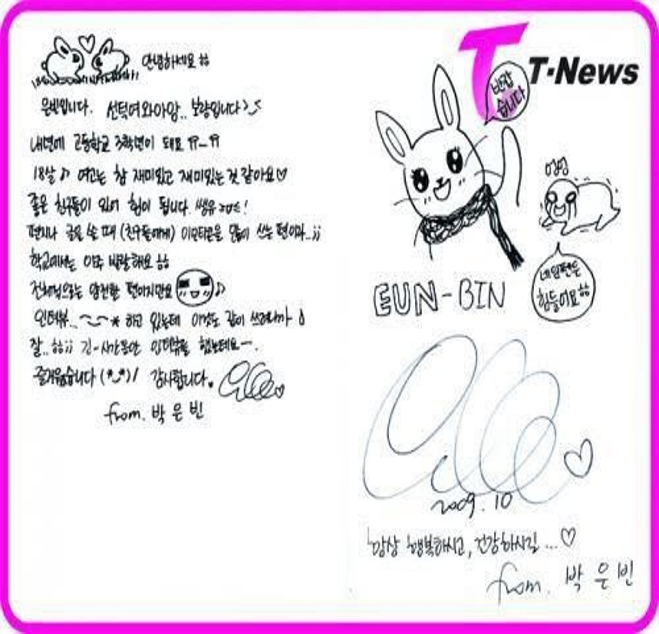 안녕하세요 ㅎㅎ
은빈입니다. 선덕여와아앙.. 보량입니다>_<
내년에 고등학교 3학년이 돼요 ㅠ_ㅠ
18살♪ 여고는 참 재미있고 재미있는것 같아요♡
좋은 친구들이 있어 힘이 됩니다.
편지나 글을 쓸 때 (친구들에게) 이모티콘을 많이 쓰는 편이라..;;
학교에서는 아주 발랄해요 ㅎㅎ
전체적으로는 얌전한 편이지만요 ♪
인터뷰...~_~* 하고 있는데 이것도 같이 쓰려니까
잘.. ㅎㅎ;; 긴-시간동안 인터뷰를 했는데요ㅡ.
즐거웠습니다 (*_*)/ 감사합니다.
from. 박은빈
T T-News
반갑
습니다
엉엉
네임펜은
힘들어요 ㅎㅎ
EUN-BIN
2009.10
항상 행복하시고, 건강하시길...♡
from. 박은빈